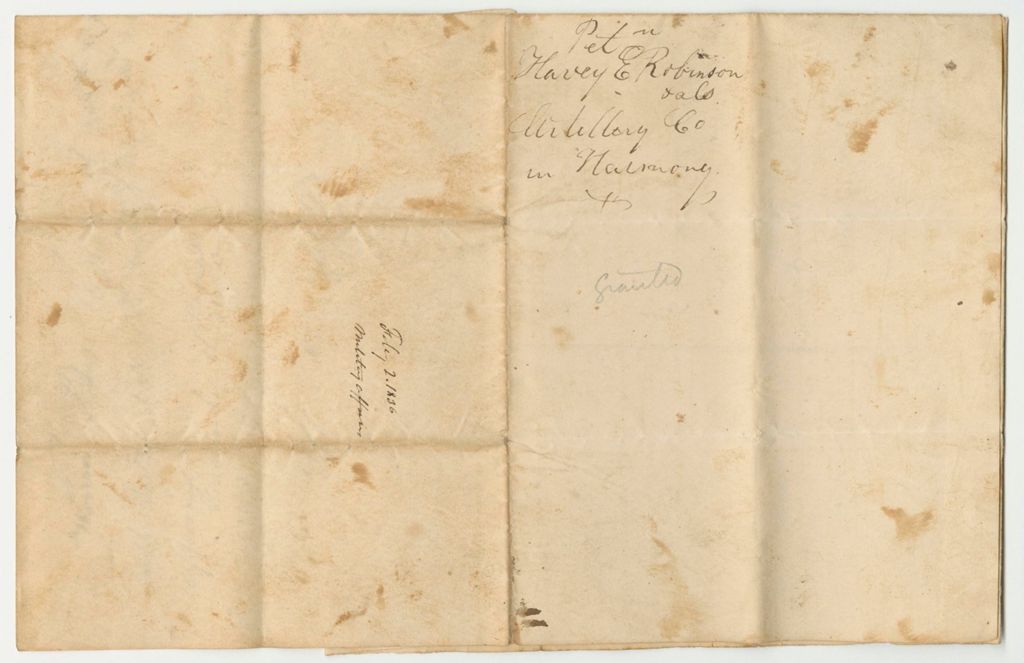 Petn
Harvey E Robinson
& als
Artillery Co
in Harmony.
Granted
Feby 2. 1836
Military affairs